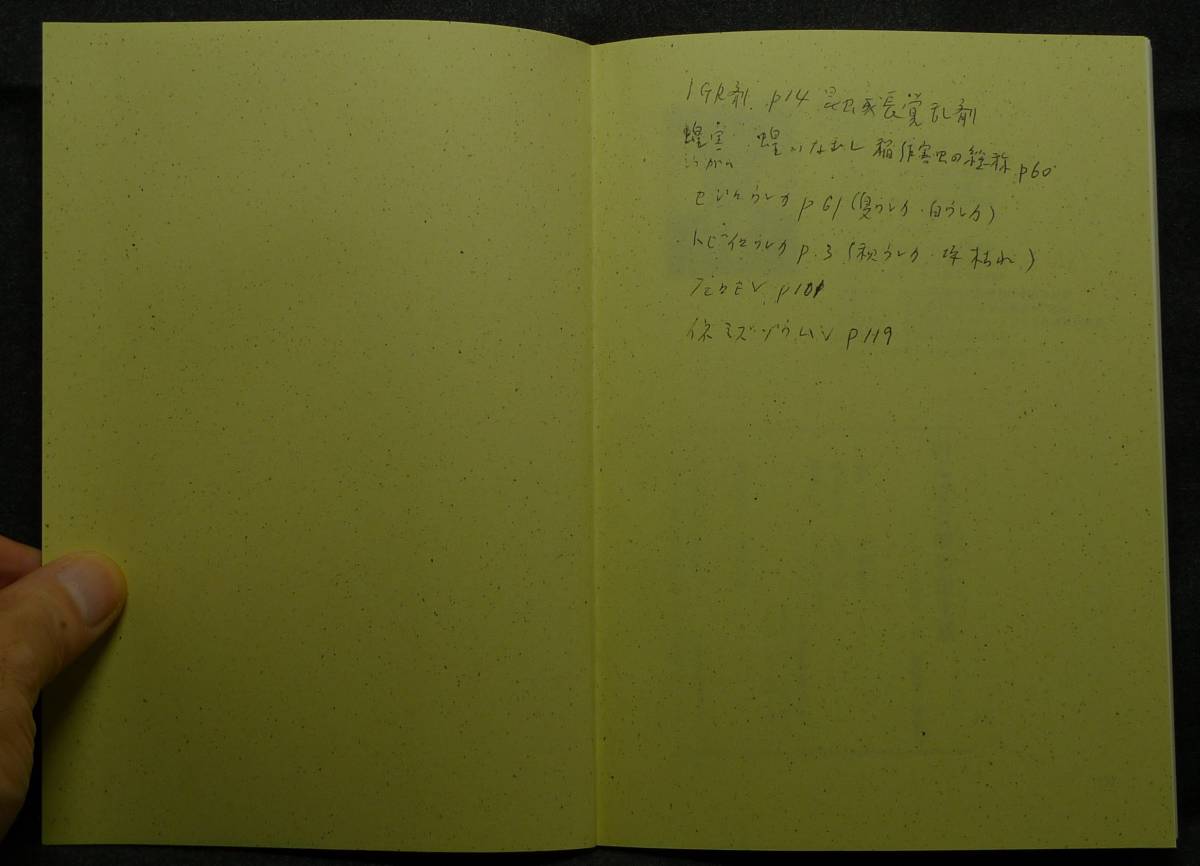 IGR剤 p14 昆虫成長覚乱剤
蝗害 蝗いなむし 稲作害虫の総称 p60
セジロウンカ p61 (夏ウンカ・白ウンカ)
トビイロウンカ p.3 (秋ウンカ・坪枯れ)
p101
イネミズゾウムシ p119